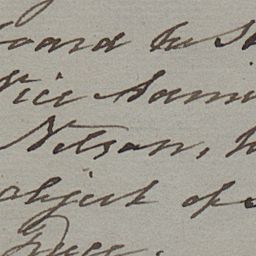 board the S
Vice Admi
Nelson, h
object of